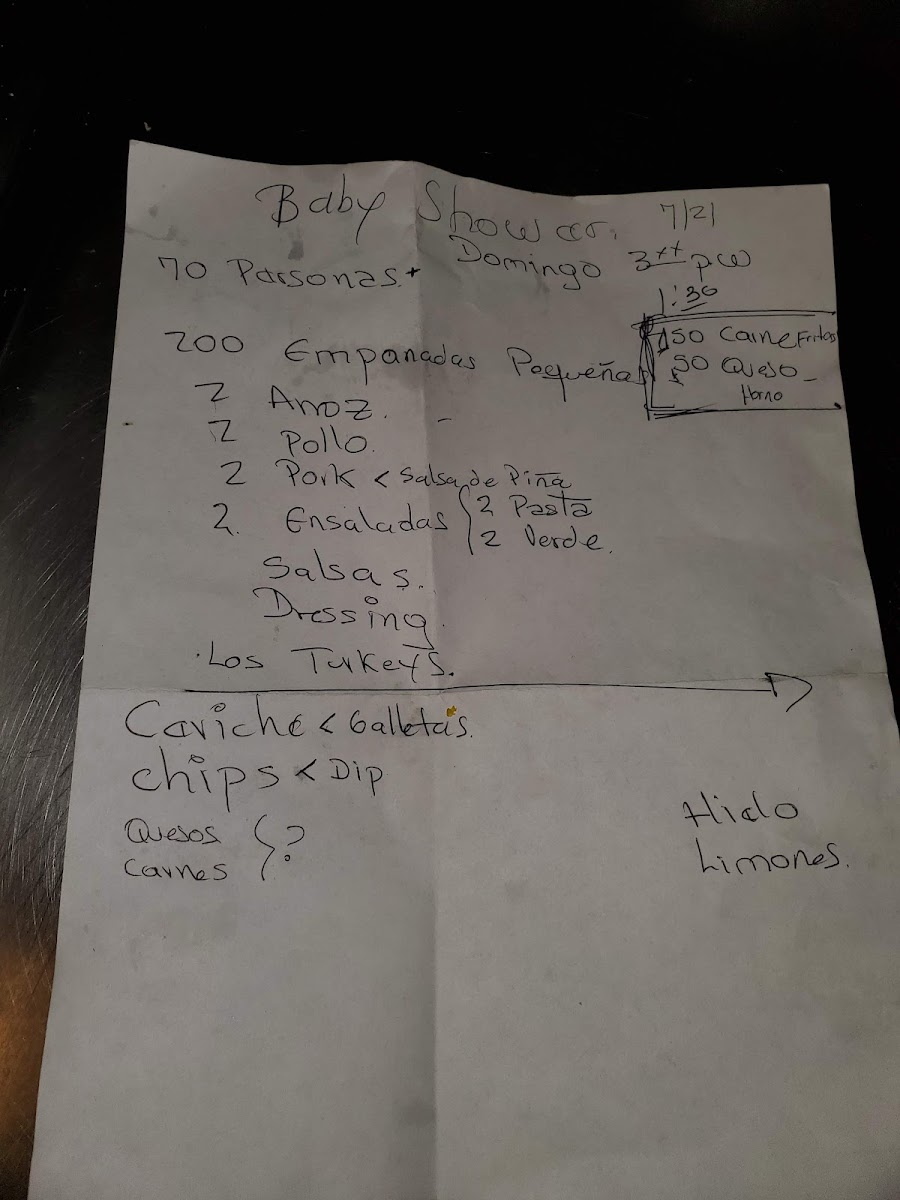 Baby Shower. 7/21
Domingo 3 pm
70 Personas+
1:30
200 Empanadas Pequeñas
150 Carne Fritas
50 Queso -
Horno
2 Arroz.
2 Pollo.
2 Pork < Salsa de Piña
2. Ensaladas { 2 Pasta
2 Verde.
Salsas.
Dressing.
. Los Turkeys.
Ceviche < Galletas.
chips < Dip
Quesos } ?
Carnes
Hielo
Limones.